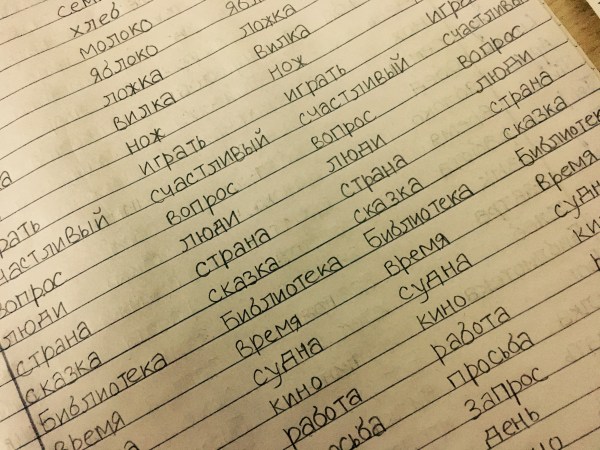 хлеб
молоко
яблоко
ложка ложка
вилка вилка
нож нож
играть играть играть
счастливый счастливый счастливый
вопрос вопрос вопрос вопрос
люди люди люди люди
страна страна страна страна
сказка сказка сказка сказка
Библиотека Библиотека Библиотека Библиотека
время время время время
судна судна
кино кино
работа работа
просьба
запрос
день